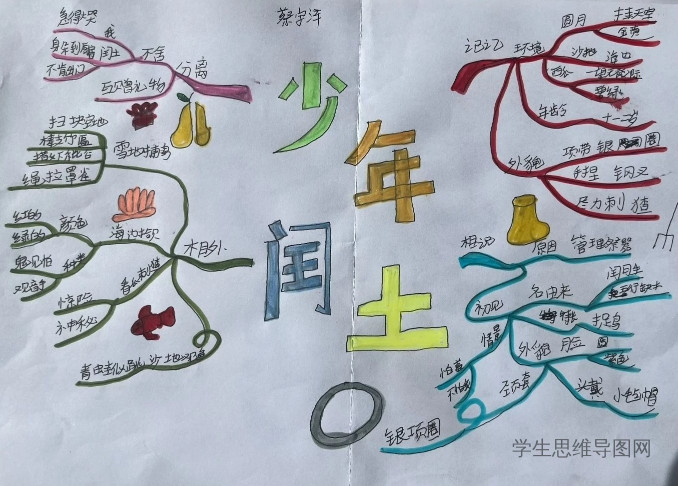 蔡宇泽
少年闰土
急得大哭
我
躲到厨
闰土
不肯出门
不舍
分离
互见曾礼物
扫一块空地
棒支竹匾
撒下秕谷
绳拉罩雀
雪地捕鸟
红的
绿的
颜色
鬼见怕
观音手
种类
海边拾贝
看瓜刺猹
惊险
神秘
木月外
青虫圭儿跳
沙地
记忆
环境
圆月
挂天空
金黄
沙地
海边
西瓜
一望无际
碧绿
年龄
十一二岁
外貌
项带银圈
手捏
钢叉
尽力刺
猹
相识
原因
管理祭器
初见
名由来
闰月生
五行缺土
特长
捉鸟
外貌
脸
圆
紫色
头戴
小毡帽
情景
怕羞
不怕我
颈套
银项圈
学生思维导图网